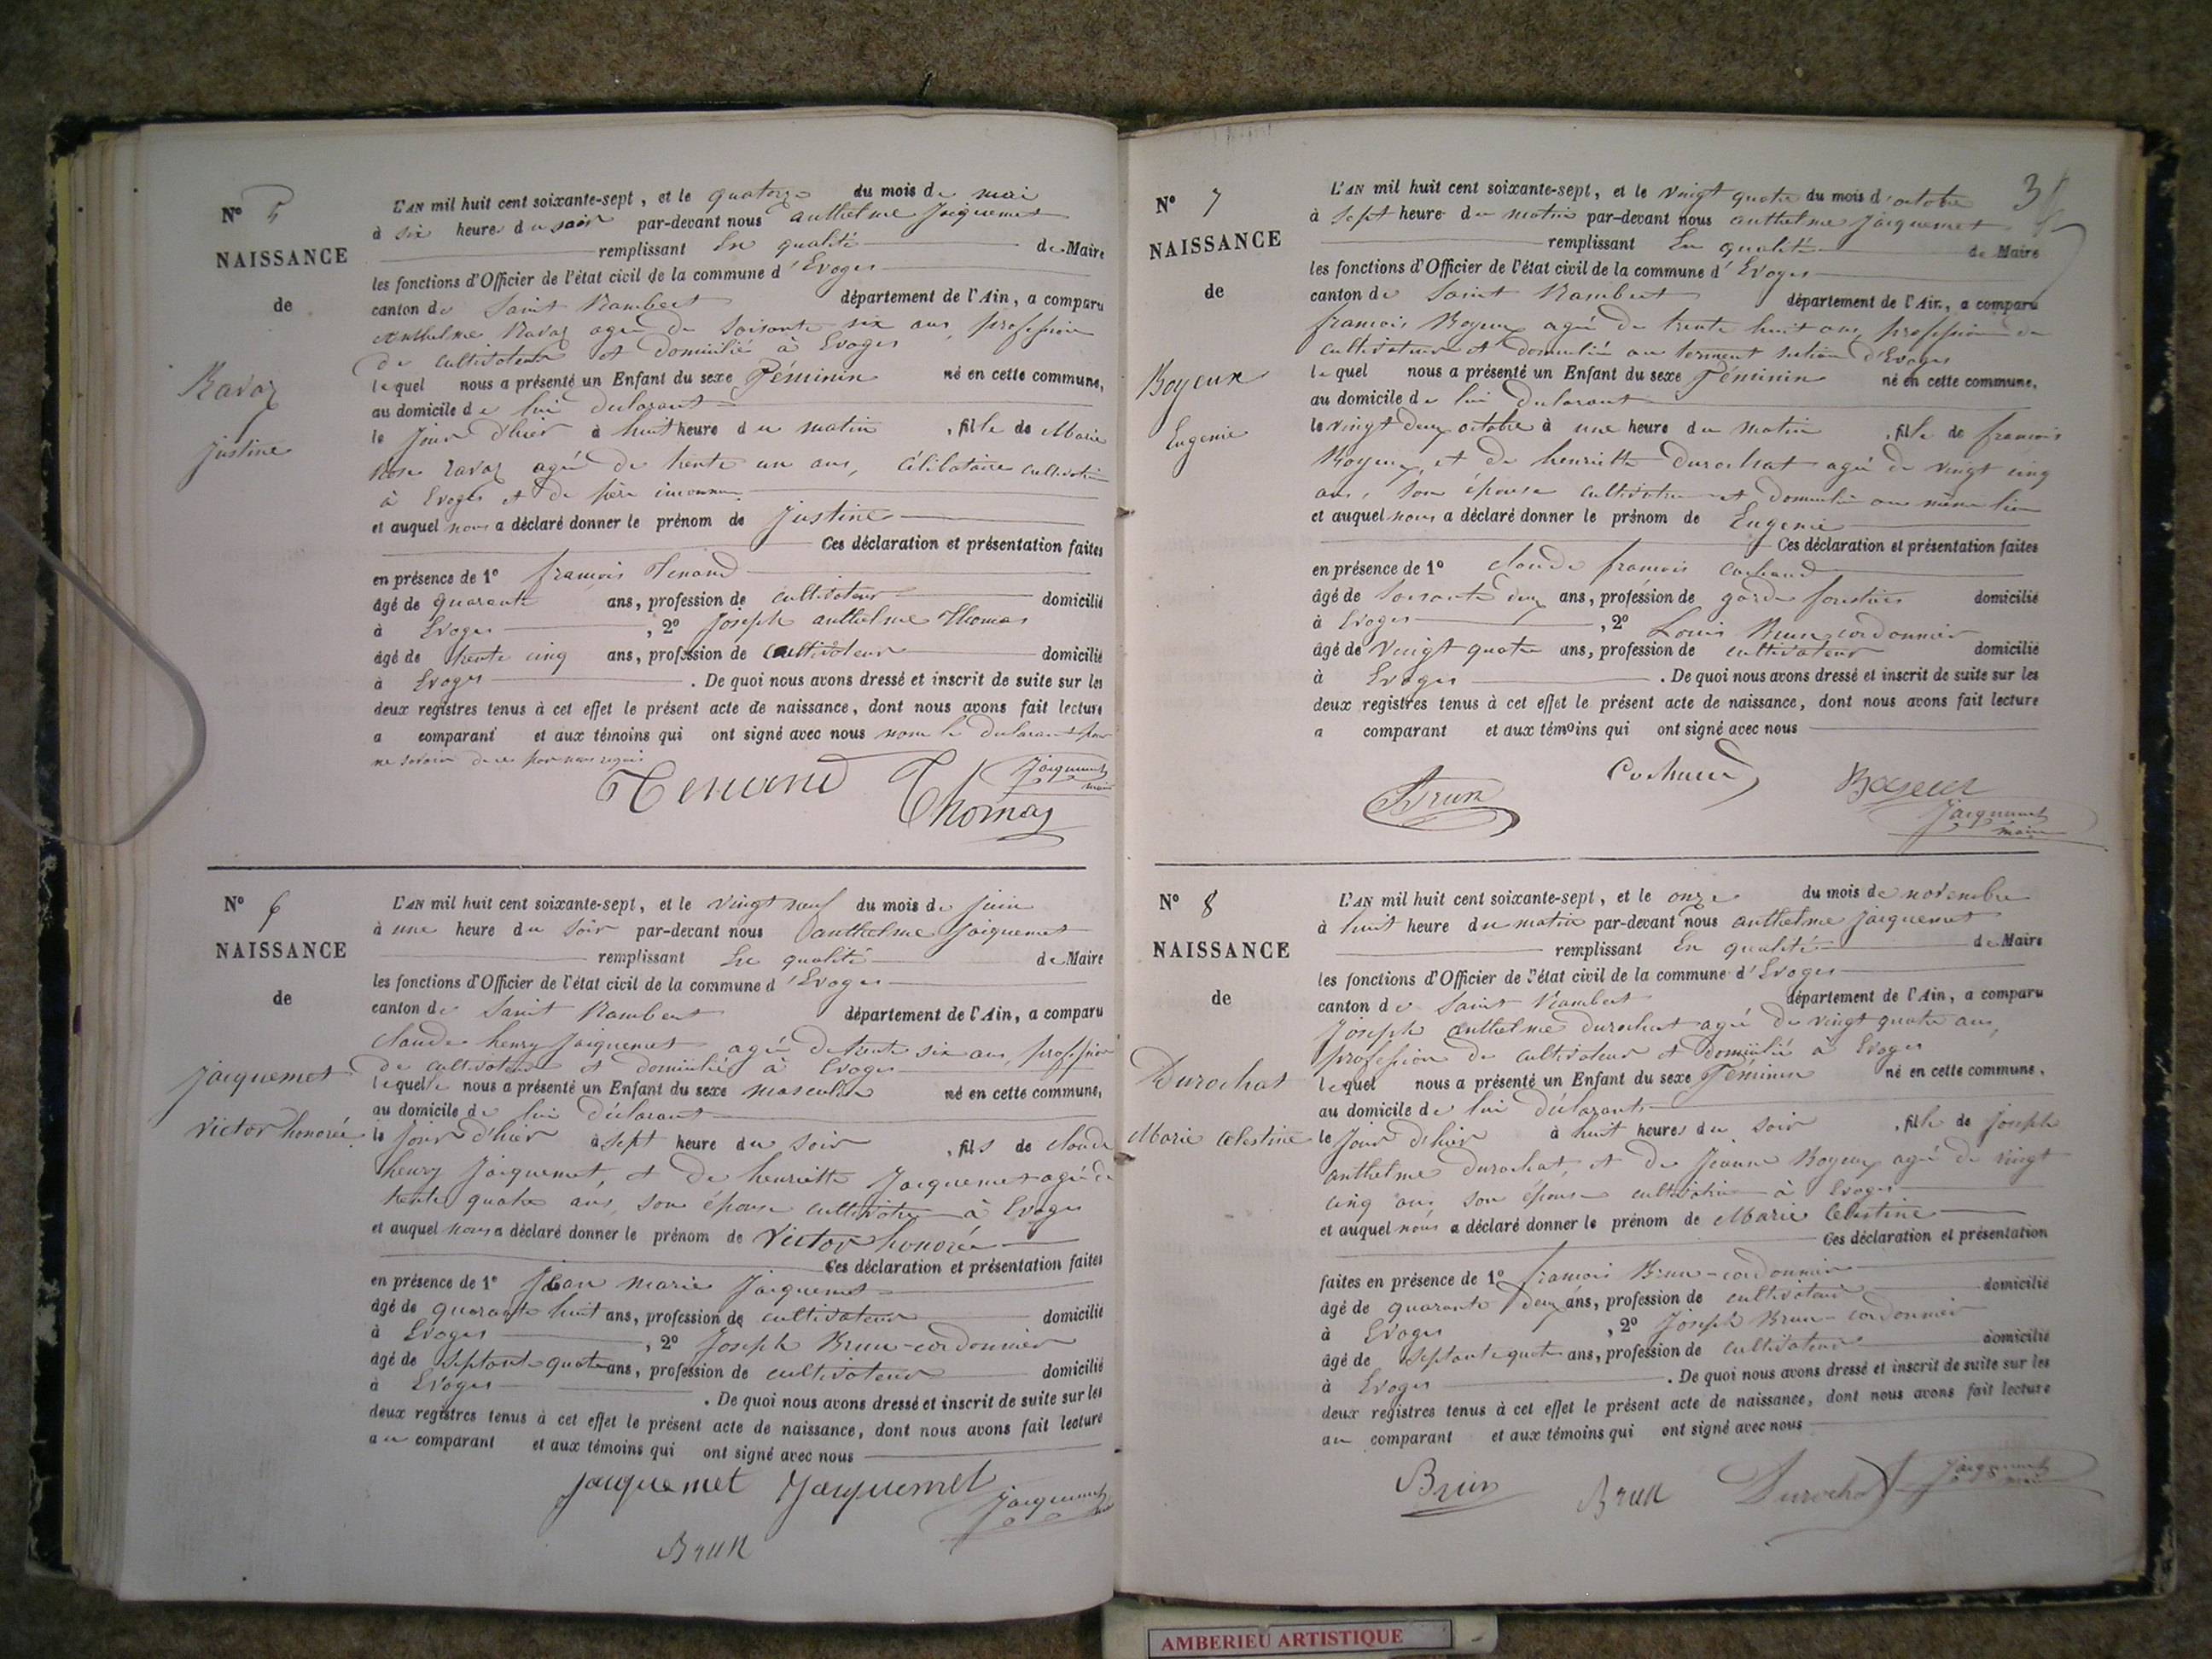 N° 5
NAISSANCE
de
Ravaz
Justine
L'AN mil huit cent soixante-sept, et le quatorze du mois de mai
à six heures du soir par-devant nous anthelme Jacquemet
remplissant En qualité de Maire
les fonctions d'Officier de l'état civil de la commune d'Evoges
canton de Saint Rambert département de l'Ain, a comparu
Anthelme Ravaz agé de soixante six ans, profession
de cultivateur et domicilié à Evoges
lequel nous a présenté un Enfant du sexe Féminin né en cette commune,
au domicile de lui déclarant
le jour d'hier à huit heure du matin, fille de Marie
Rose Ravaz agé de trente un ans, célibataire cultivatrice
à Evoges et de père inconnu
et auquel nous a déclaré donner le prénom de Justine
Ces déclaration et présentation faites
en présence de 1° françois Tenand
âgé de quarante ans, profession de cultivateur domicilié
à Evoges, 2° Joseph anthelme Thomas
âgé de trente cinq ans, profession de cultivateur domicilié
à Evoges. De quoi nous avons dressé et inscrit de suite sur les
deux registres tenus à cet effet le présent acte de naissance, dont nous avons fait lecture
a comparant et aux témoins qui ont signé avec nous non le déclarant pour
ne savoir de ce par nous requis
Tenand Thomas Jacquemet maire
N° 6
NAISSANCE
de
Jacquemet
Victor honorée
L'AN mil huit cent soixante-sept, et le vingt neuf du mois de juin
à une heure du soir par-devant nous anthelme Jacquemet
remplissant En qualité de Maire
les fonctions d'Officier de l'état civil de la commune d'Evoges
canton de Saint Rambert département de l'Ain, a comparu
Claude henry Jacquemet agé de trente six ans, profession
de cultivateur et domicilié à Evoges
lequel nous a présenté un Enfant du sexe masculin né en cette commune,
au domicile de lui déclarant
le jour d'hier à sept heure du soir, fils de claude
henry Jacquemet, et de henriette Jacquemet agé de
trente quatre ans, son épouse cultivatrice à Evoges
et auquel nous a déclaré donner le prénom de Victor honorée
Ces déclaration et présentation faites
en présence de 1° Jean marie Jacquemet
âgé de quarante huit ans, profession de cultivateur domicilié
à Evoges, 2° Joseph Brun-cordonnier
âgé de septante quatre ans, profession de cultivateur domicilié
à Evoges. De quoi nous avons dressé et inscrit de suite sur les
deux registres tenus à cet effet le présent acte de naissance, dont nous avons fait lecture
au comparant et aux témoins qui ont signé avec nous
Jacquemet Jacquemet Jacquemet
Brun
N° 7
NAISSANCE
de
Boyeux
Eugenie
L'AN mil huit cent soixante-sept, et le vingt quatre du mois d'octobre
à sept heure du matin par-devant nous anthelme Jacquemet
remplissant En qualité de Maire
les fonctions d'Officier de l'état civil de la commune d'Evoges
canton de Saint Rambert département de l'Ain, a comparu
françois Boyeux agé de trente huit ans, profession de
cultivateur et domicilié au section d'Evoges
lequel nous a présenté un Enfant du sexe Féminin né en cette commune,
au domicile de lui déclarant
le vingt deux octobre à une heure du matin, fille de françois
Boyeux, et de henriette Durochat agé de vingt cinq
ans, son épouse cultivatrice et domiciliée au même lieu
et auquel nous a déclaré donner le prénom de Eugenie
Ces déclaration et présentation faites
en présence de 1° claude françois cochand
âgé de soixante deux ans, profession de garde forestier domicilié
à Evoges, 2° Louis Brun cordonnier
âgé de vingt quatre ans, profession de cultivateur domicilié
à Evoges. De quoi nous avons dressé et inscrit de suite sur les
deux registres tenus à cet effet le présent acte de naissance, dont nous avons fait lecture
a comparant et aux témoins qui ont signé avec nous
Brun Boyeux
Jacquemet maire
N° 8
NAISSANCE
de
Durochat
Marie Celestine
L'AN mil huit cent soixante-sept, et le onze du mois de novembre
à huit heure du matin par-devant nous anthelme Jacquemet
remplissant En qualité de Maire
les fonctions d'Officier de l'état civil de la commune d'Evoges
canton de Saint Rambert département de l'Ain, a comparu
Joseph anthelme durochat agé de vingt quatre ans,
profession de cultivateur et domicilié à Evoges
lequel nous a présenté un Enfant du sexe Féminin né en cette commune,
au domicile de lui déclarant
le jour d'hier à huit heures du soir, fille de Joseph
anthelme durochat, et de Jeanne Boyeux agé de vingt
cinq ans, son épouse cultivatrice à Evoges
et auquel nous a déclaré donner le prénom de Marie Celestine
Ces déclaration et présentation
faites en présence de 1° françois Brun-cordonnier
âgé de quarante deux ans, profession de cultivateur domicilié
à Evoges, 2° Joseph Brun-cordonnier
âgé de septante quatre ans, profession de cultivateur domicilié
à Evoges. De quoi nous avons dressé et inscrit de suite sur les
deux registres tenus à cet effet le présent acte de naissance, dont nous avons fait lecture
au comparant et aux témoins qui ont signé avec nous
Brun Brun Durochat Jacquemet maire
AMBERIEU ARTISTIQUE